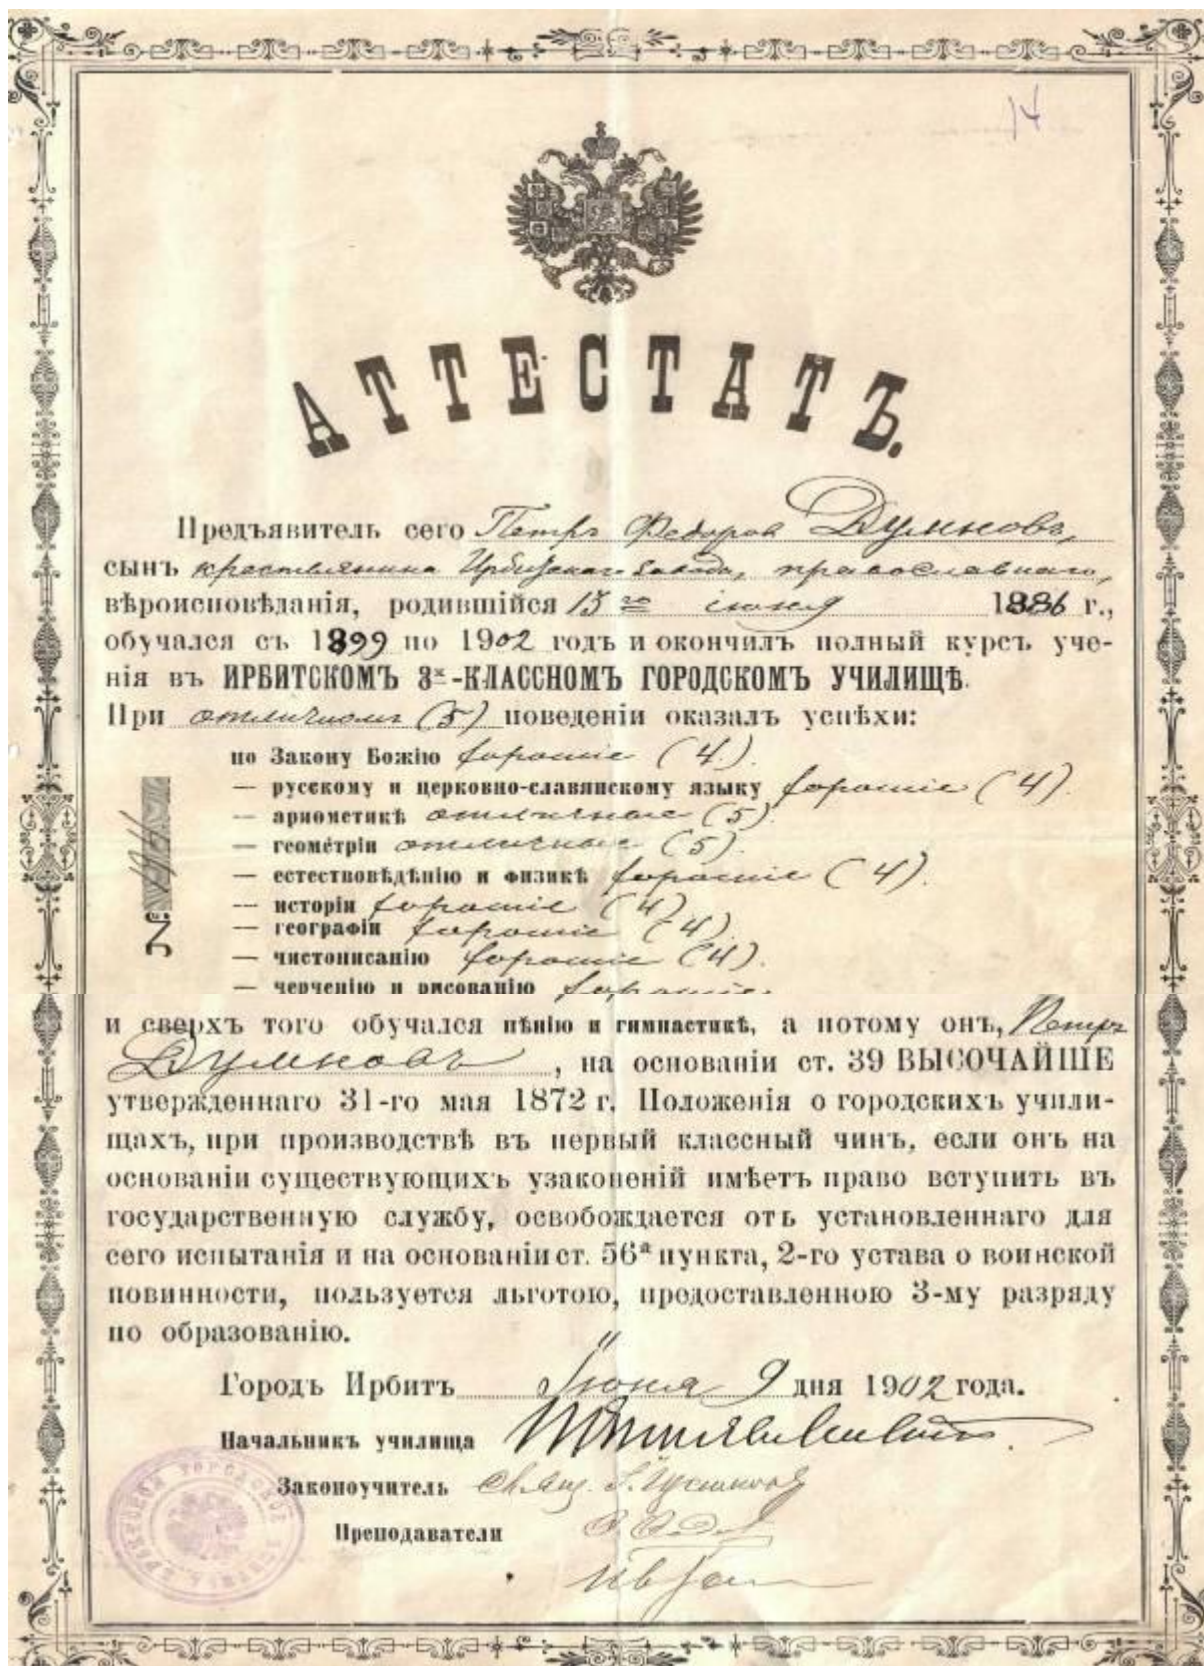 14
АТТЕСТАТЪ.
Предъявитель сего Петръ Федоров Думновъ,
сынъ крестьянина Ирбитскаго завода, православнаго,
вѣроисповѣданія, родившійся 15го іюня 1886 г.,
обучался съ 1899 по 1902 годъ и окончилъ полный курсъ уче-
нія въ ИРБИТСКОМЪ 3х-КЛАССНОМЪ ГОРОДСКОМЪ УЧИЛИЩѢ.
При отличномъ (5) поведеніи оказалъ успѣхи:
по Закону Божію хорошіе (4).
— русскому и церковно-славянскому языку хорошіе (4).
— ариѳметикѣ отличные (5)
— геометріи отличные (5).
— естествовѣдѣнію и физикѣ хорошіе (4).
— исторіи хорошіе (4)
— географіи хорошіе (4)
— чистописанію хорошіе (4).
— черченію и рисованію хорошіе.
и сверхъ того обучался пѣнію и гимнастикѣ, а потому онъ, Петръ
Думновъ, на основаніи ст. 39 ВЫСОЧАЙШЕ
утвержденнаго 31-го мая 1872 г. Положенія о городскихъ учили-
щахъ, при производствѣ въ первый классный чинъ, если онъ на
основаніи существующихъ узаконеній имѣетъ право вступить въ
государственную службу, освобождается отъ установленнаго для
сего испытанія и на основаніи ст. 56а пункта, 2-го устава о воинской
повинности, пользуется льготою, предоставленною 3-му разряду
по образованію.
Городъ Ирбитъ Іюня 9 дня 1902 года.
Начальникъ училища
Законоучитель
Преподаватели